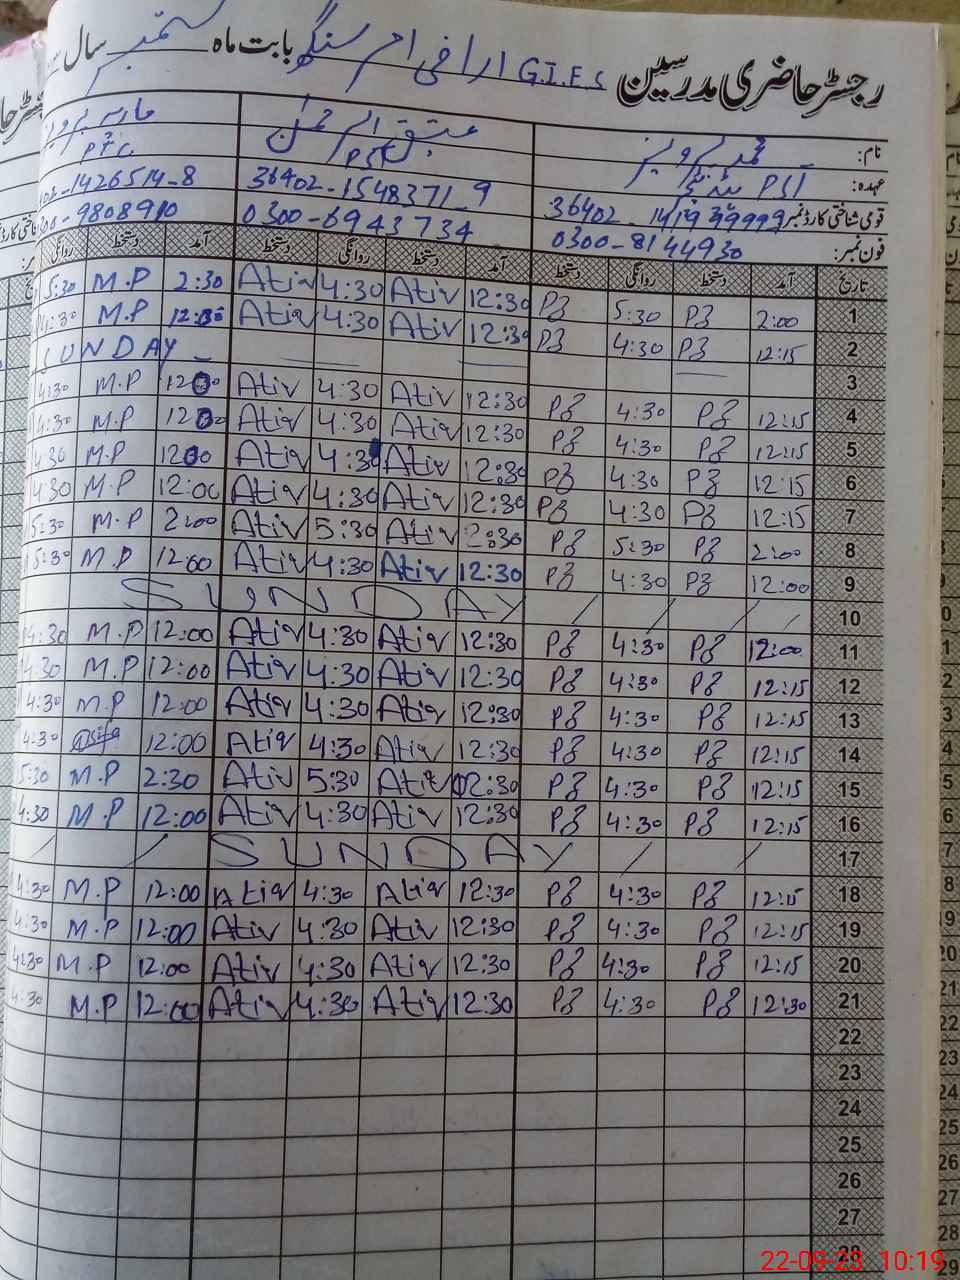 رجسٹر حاضری مدرسین G.I.E.S اراضی امر سنگھ بابت ماہ ستمبر سال
نام: محمد پرویز عتیق الرحمٰن
عہدہ: PST PTC
قومی شناختی کارڈ نمبر 36402-1548371-9 -1426514-8
فون نمبر: 0300-8144930 0300-6943734 300-9808910
تاریخ آمد دستخط روانگی دستخط آمد دستخط روانگی دستخط آمد دستخط روانگی
1 2:00 P3 5:30 P3 12:30 Atiq 4:30 Atiq 2:30 M.P 5:30
2 12:15 P3 4:30 P3 12:30 Atiq 4:30 Atiq M.P 4:30
3 SUNDAY
4 12:15 P3 4:30 P3 12:30 Atiq 4:30 Atiq M.P 4:30
5 12:15 P3 4:30 P3 12:30 Atiq 4:30 Atiq M.P 4:30
6 12:15 P3 4:30 P3 12:30 Atiq 4:30 Atiq M.P 4:30
7 12:15 P3 4:30 P3 12:30 Atiq 4:30 Atiq 12:00 M.P 4:30
8 2:00 P3 5:30 P3 2:30 Atiq 5:30 Atiq 2:00 M.P 5:30
9 12:00 P3 4:30 P3 12:30 Atiq 4:30 Atiq 12:00 M.P 5:30
10 SUNDAY
11 12:00 P3 4:30 P3 12:30 Atiq 4:30 Atiq 12:00 M.P 4:30
12 12:15 P3 4:30 P3 12:30 Atiq 4:30 Atiq 12:00 M.P 4:30
13 12:15 P3 4:30 P3 12:30 Atiq 4:30 Atiq 12:00 M.P 4:30
14 12:15 P3 4:30 P3 12:30 Atiq 4:30 Atiq 12:00 4:30
15 12:15 P3 4:30 P3 2:30 Atiq 5:30 Atiq 2:30 M.P 5:30
16 12:15 P3 4:30 P3 12:30 Atiq 4:30 Atiq 12:00 M.P 4:30
17 SUNDAY
18 12:15 P3 4:30 P3 12:30 Atiq 4:30 Atiq 12:00 M.P 4:30
19 12:15 P3 4:30 P3 12:30 Atiq 4:30 Atiq 12:00 M.P 4:30
20 12:15 P3 4:30 P3 12:30 Atiq 4:30 Atiq 12:00 M.P 4:30
21 12:30 P3 4:30 P3 12:30 Atiq 4:30 Atiq 12:00 M.P 4:30
22
23
24
25
26
27
28
22-09-23 10:19